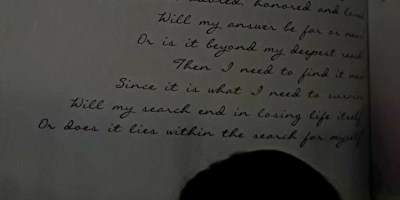 honored and loved
Will my answer be far or near
Or is it beyond my deepest
Then I need to find it
Since it is what I need to
Will my search end in losing life itself
Or does it lies within the search for myself